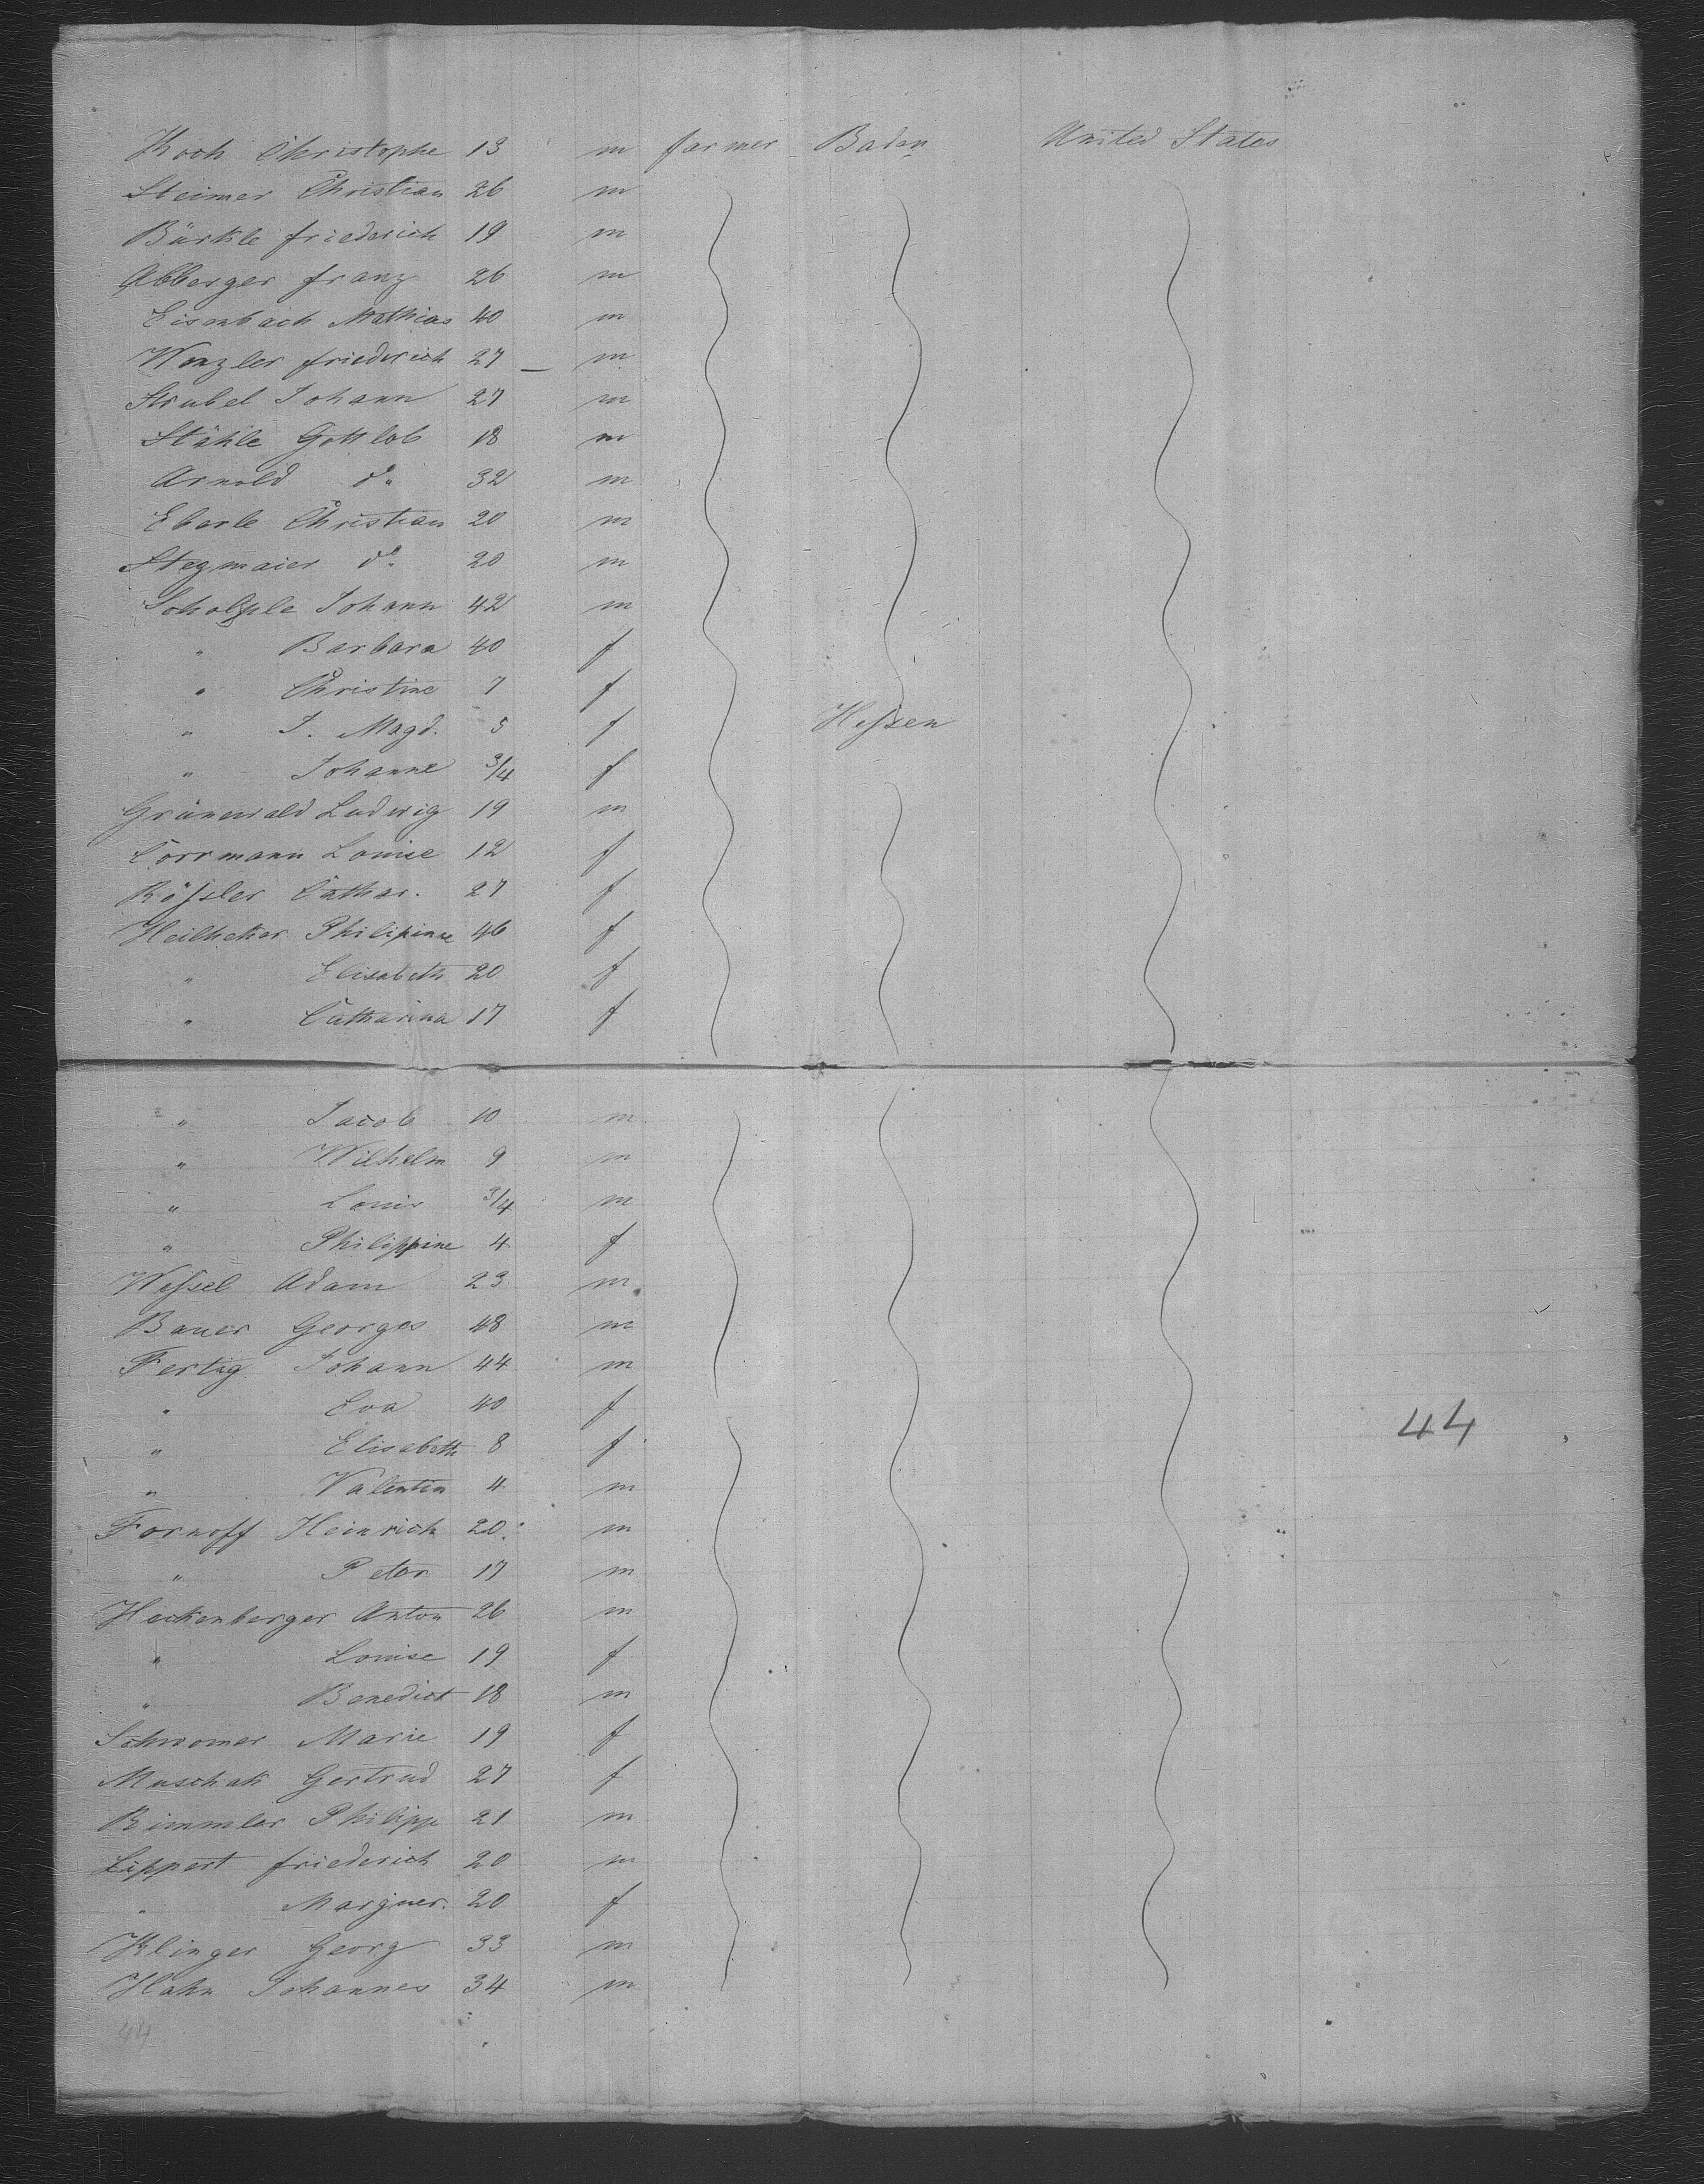 Koch Christophe 13 m farmer Baden United States
Steimer Christian 26 m
Bürkle friederich 19 m
Abberger franz 26 m
Eisenbach Mathias 40 m
Wenzler friederich 27 — m
Strubel Johann 27 m
Stähle Gottlob 18 m
Arnold do 32 m
Eberle Christian 20 m
Stegmaier do 20 m
Johann 42 m
" Barbara 40 f
" Christine 7 f
" J. Magd. 5 f Hessen
" Johanne 3/4 f
Grünewald Ludwig 19 m
Corrmann Louise 12 f
Rössler Cathar. 27 f
Heilheker Philipinne 46 f
" Elisabeth 20 f
" Catharina 17 f
" Jacob 10 m
" Wilhelm 9 m
" Louis 3/4 m
" Philippine 4 f
Wessel Adam 23 m
Bauer Georges 48 m
Fertig Johann 44 m
" Eva 40 f
44
" Elisabeth 8 f
" Valentin 4 m
Fornoff Heinrich 20 m
" Peter 17 m
Heckenberger Anton 26 m
" Louise 19 f
" Benedict 18 m
Marie 19 f
Muschak Gertrud 27 f
Rimmler Philipp 21 m
Lippert friederich 20 m
" Marguer. 20 f
Klinger Georg 33 m
Hahn Johannes 34 m
44